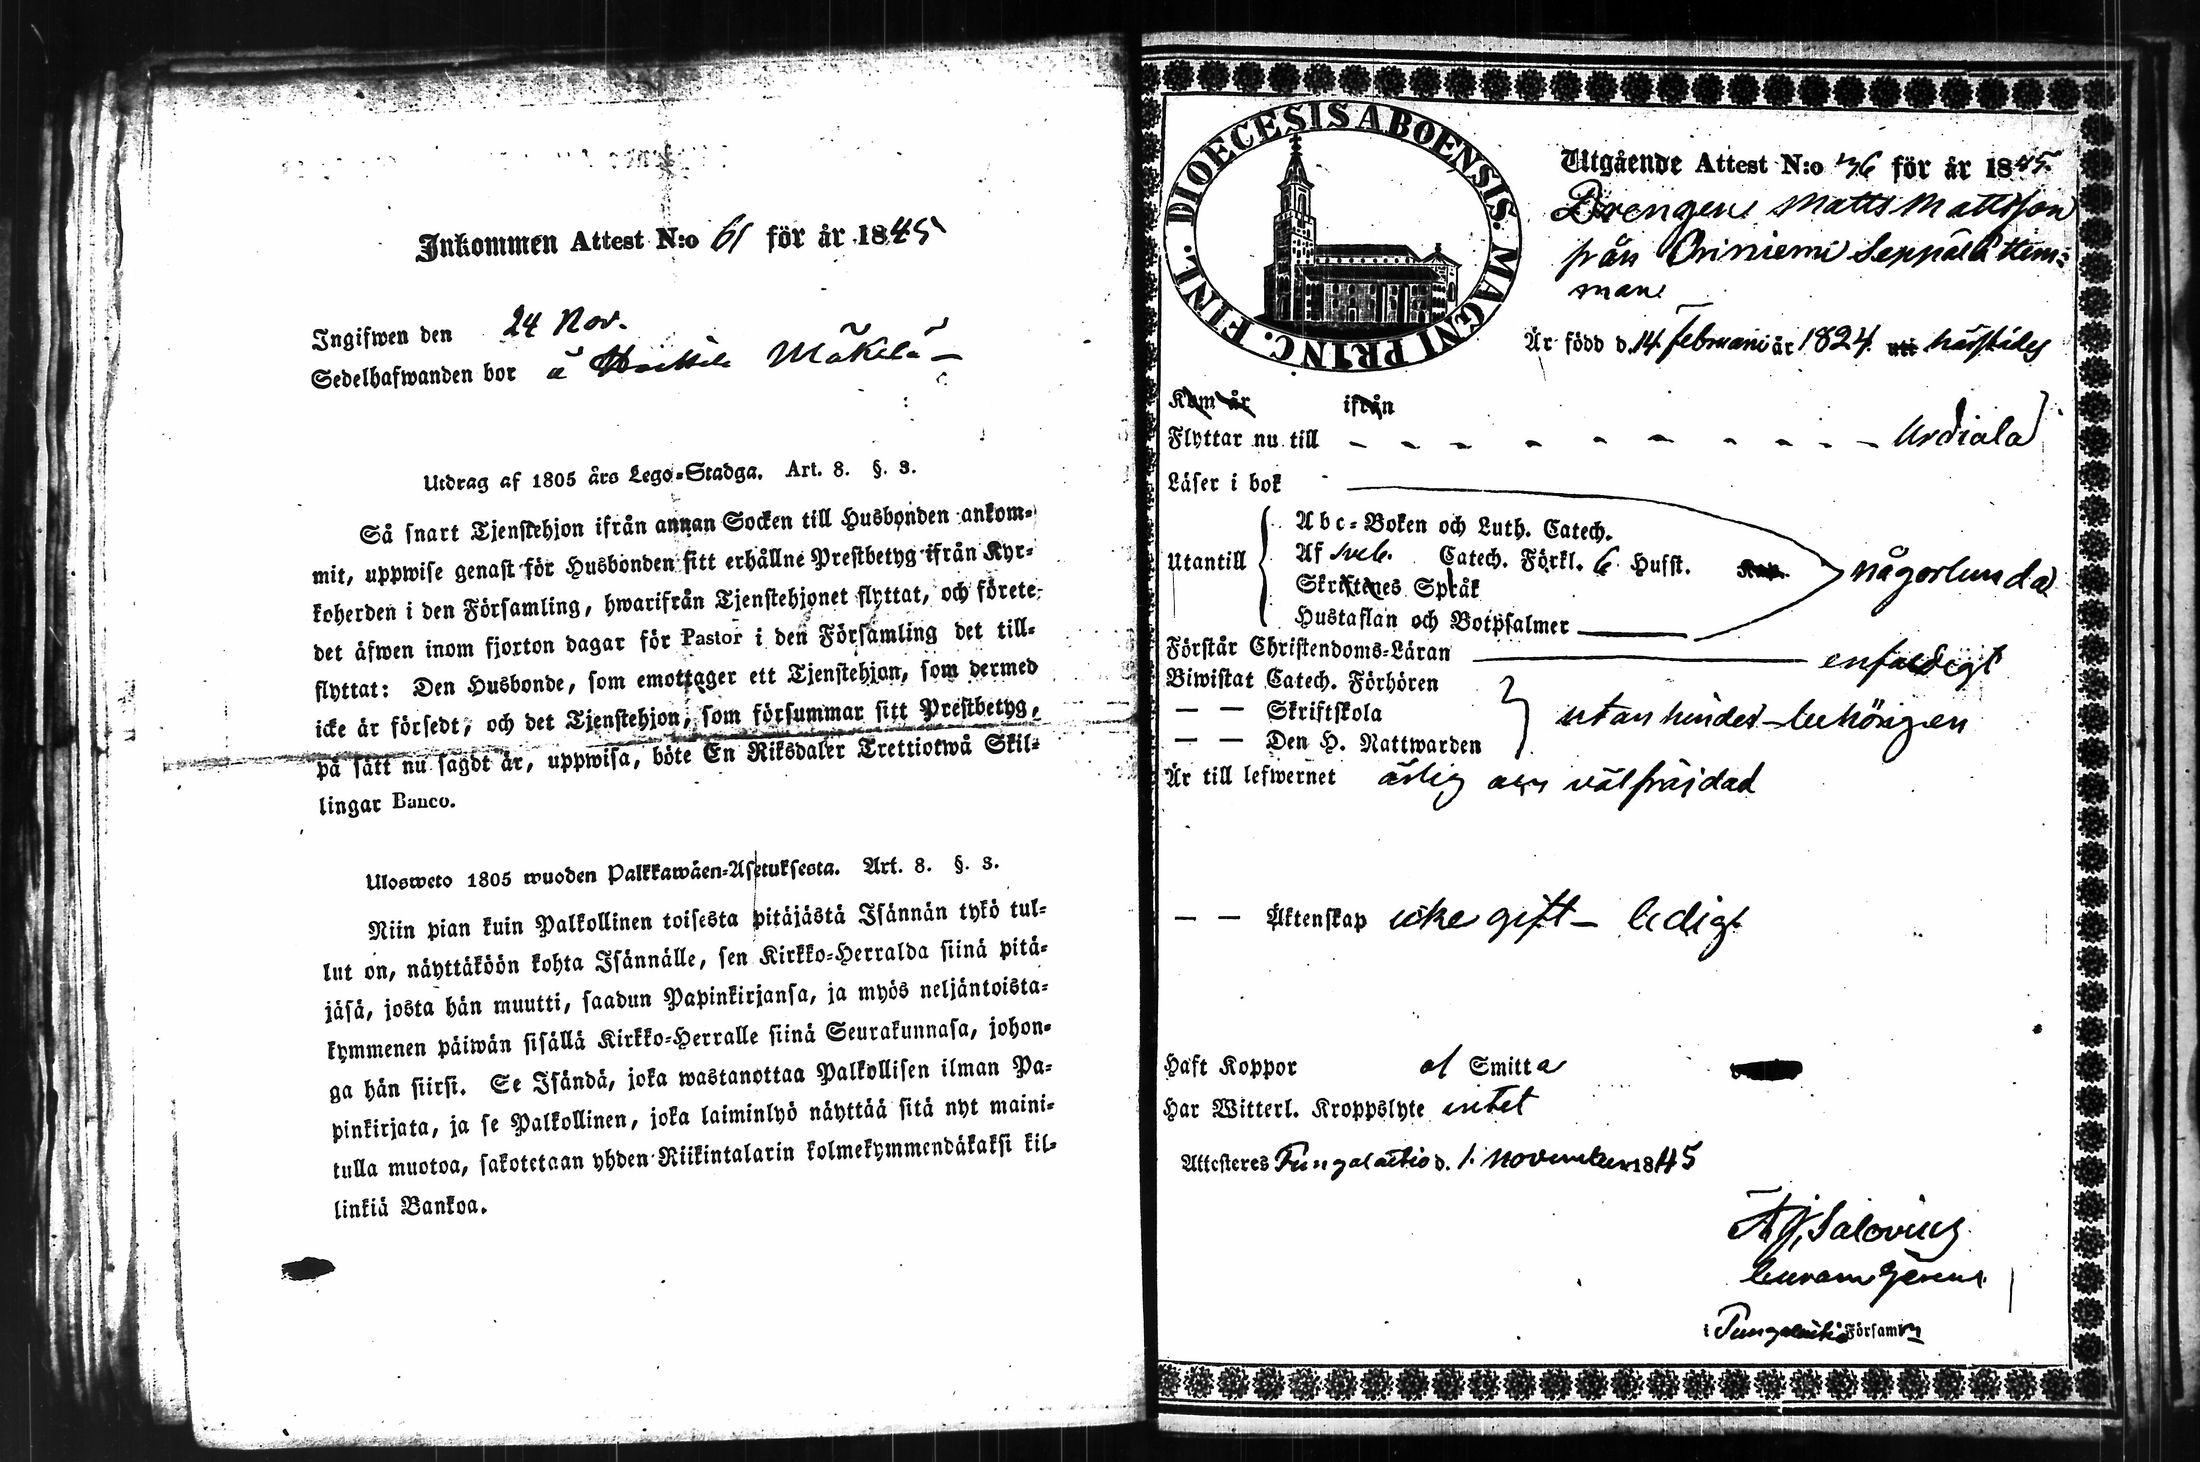 Inkommen Attest N:o 61 för år 1845
Ingifwen den 24 Nov.
Sedelhafwanden bor å Mäkelä
Utdrag af 1805 års Lego-Stadga. Art. 8. §. 3.
Så snart Tjenstehjon ifrån annan Socken till Husbonden ankom-
mit, uppwise genast för Husbonden sitt erhållne Prestbetyg ifrån Kyr-
koherden i den Församling, hwarifrån Tjenstehjonet flyttat, och förete
det äfwen inom fjorton dagar för Pastor i den Församling det till-
flyttat: Den Husbonde, som emottager ett Tjenstehjon, som dermed
icke är försedt, och det Tjenstehjon, som försummar sitt Prestbetyg,
på sätt nu sagdt är, uppwisa, böte En Riksdaler Trettiotwå Skil-
lingar Banco.
Ulosweto 1805 wuoden Palkkawäen-Asetuksesta. Art. 8. §. 3.
Niin pian kuin Palkollinen toisesta pitäjästä Isännän tykö tul-
lut on, näyttäköön kohta Isännälle, sen Kirkko-Herralda siinä pitä-
jäsä, josta hän muutti, saadun Papinkirjansa, ja myös neljäntoista-
kymmenen päiwän sisällä Kirkko-Herralle siinä Seurakunnasa, johon-
ga hän siirsi. Se Isändä, joka wastanottaa Palkollisen ilman Pa-
pinkirjata, ja se Palkollinen, joka laiminlyö näyttää sitä nyt maini-
tulla muotoa, sakotetaan yhden Riikintalarin kolmekymmendäkaksi kil-
linkiä Bankoa.
DIOECESIS ABOENSIS. MAGNI PRINC. FINL.
Utgående Attest N:o 36 för år 1845
Drengen Matts Mattsson
från Oriniemi Seppälä hem-
man
Är född d. 14 februari år 1824 uti härstädes
Kom år ifrån
Flyttar nu till - - - - - - - - - - Urdiala
Läser i bok
Abc-Boken och Luth. Catech.
Utantill Af Sveb. Catech. Förkl. 6 Hufst. Kap. någorlunda
Skriftenes Språk
Hustaflan och Botpsalmer
Förstår Christendoms-Läran enfaldigt
Biwistat Catech. Förhören
— — Skriftskola utan hinder behörigen
— — Den H. Nattwarden
Är till lefwernet ärlig och välfräjdad
— — Äktenskap icke gift - ledig
Haft Koppor af Smitta
Har Witterl. Kroppslyte intet
Attesteres Tungelaitio d. 1. november 1845
A J Salovius
curam gerens
i Pungalaitio Församl